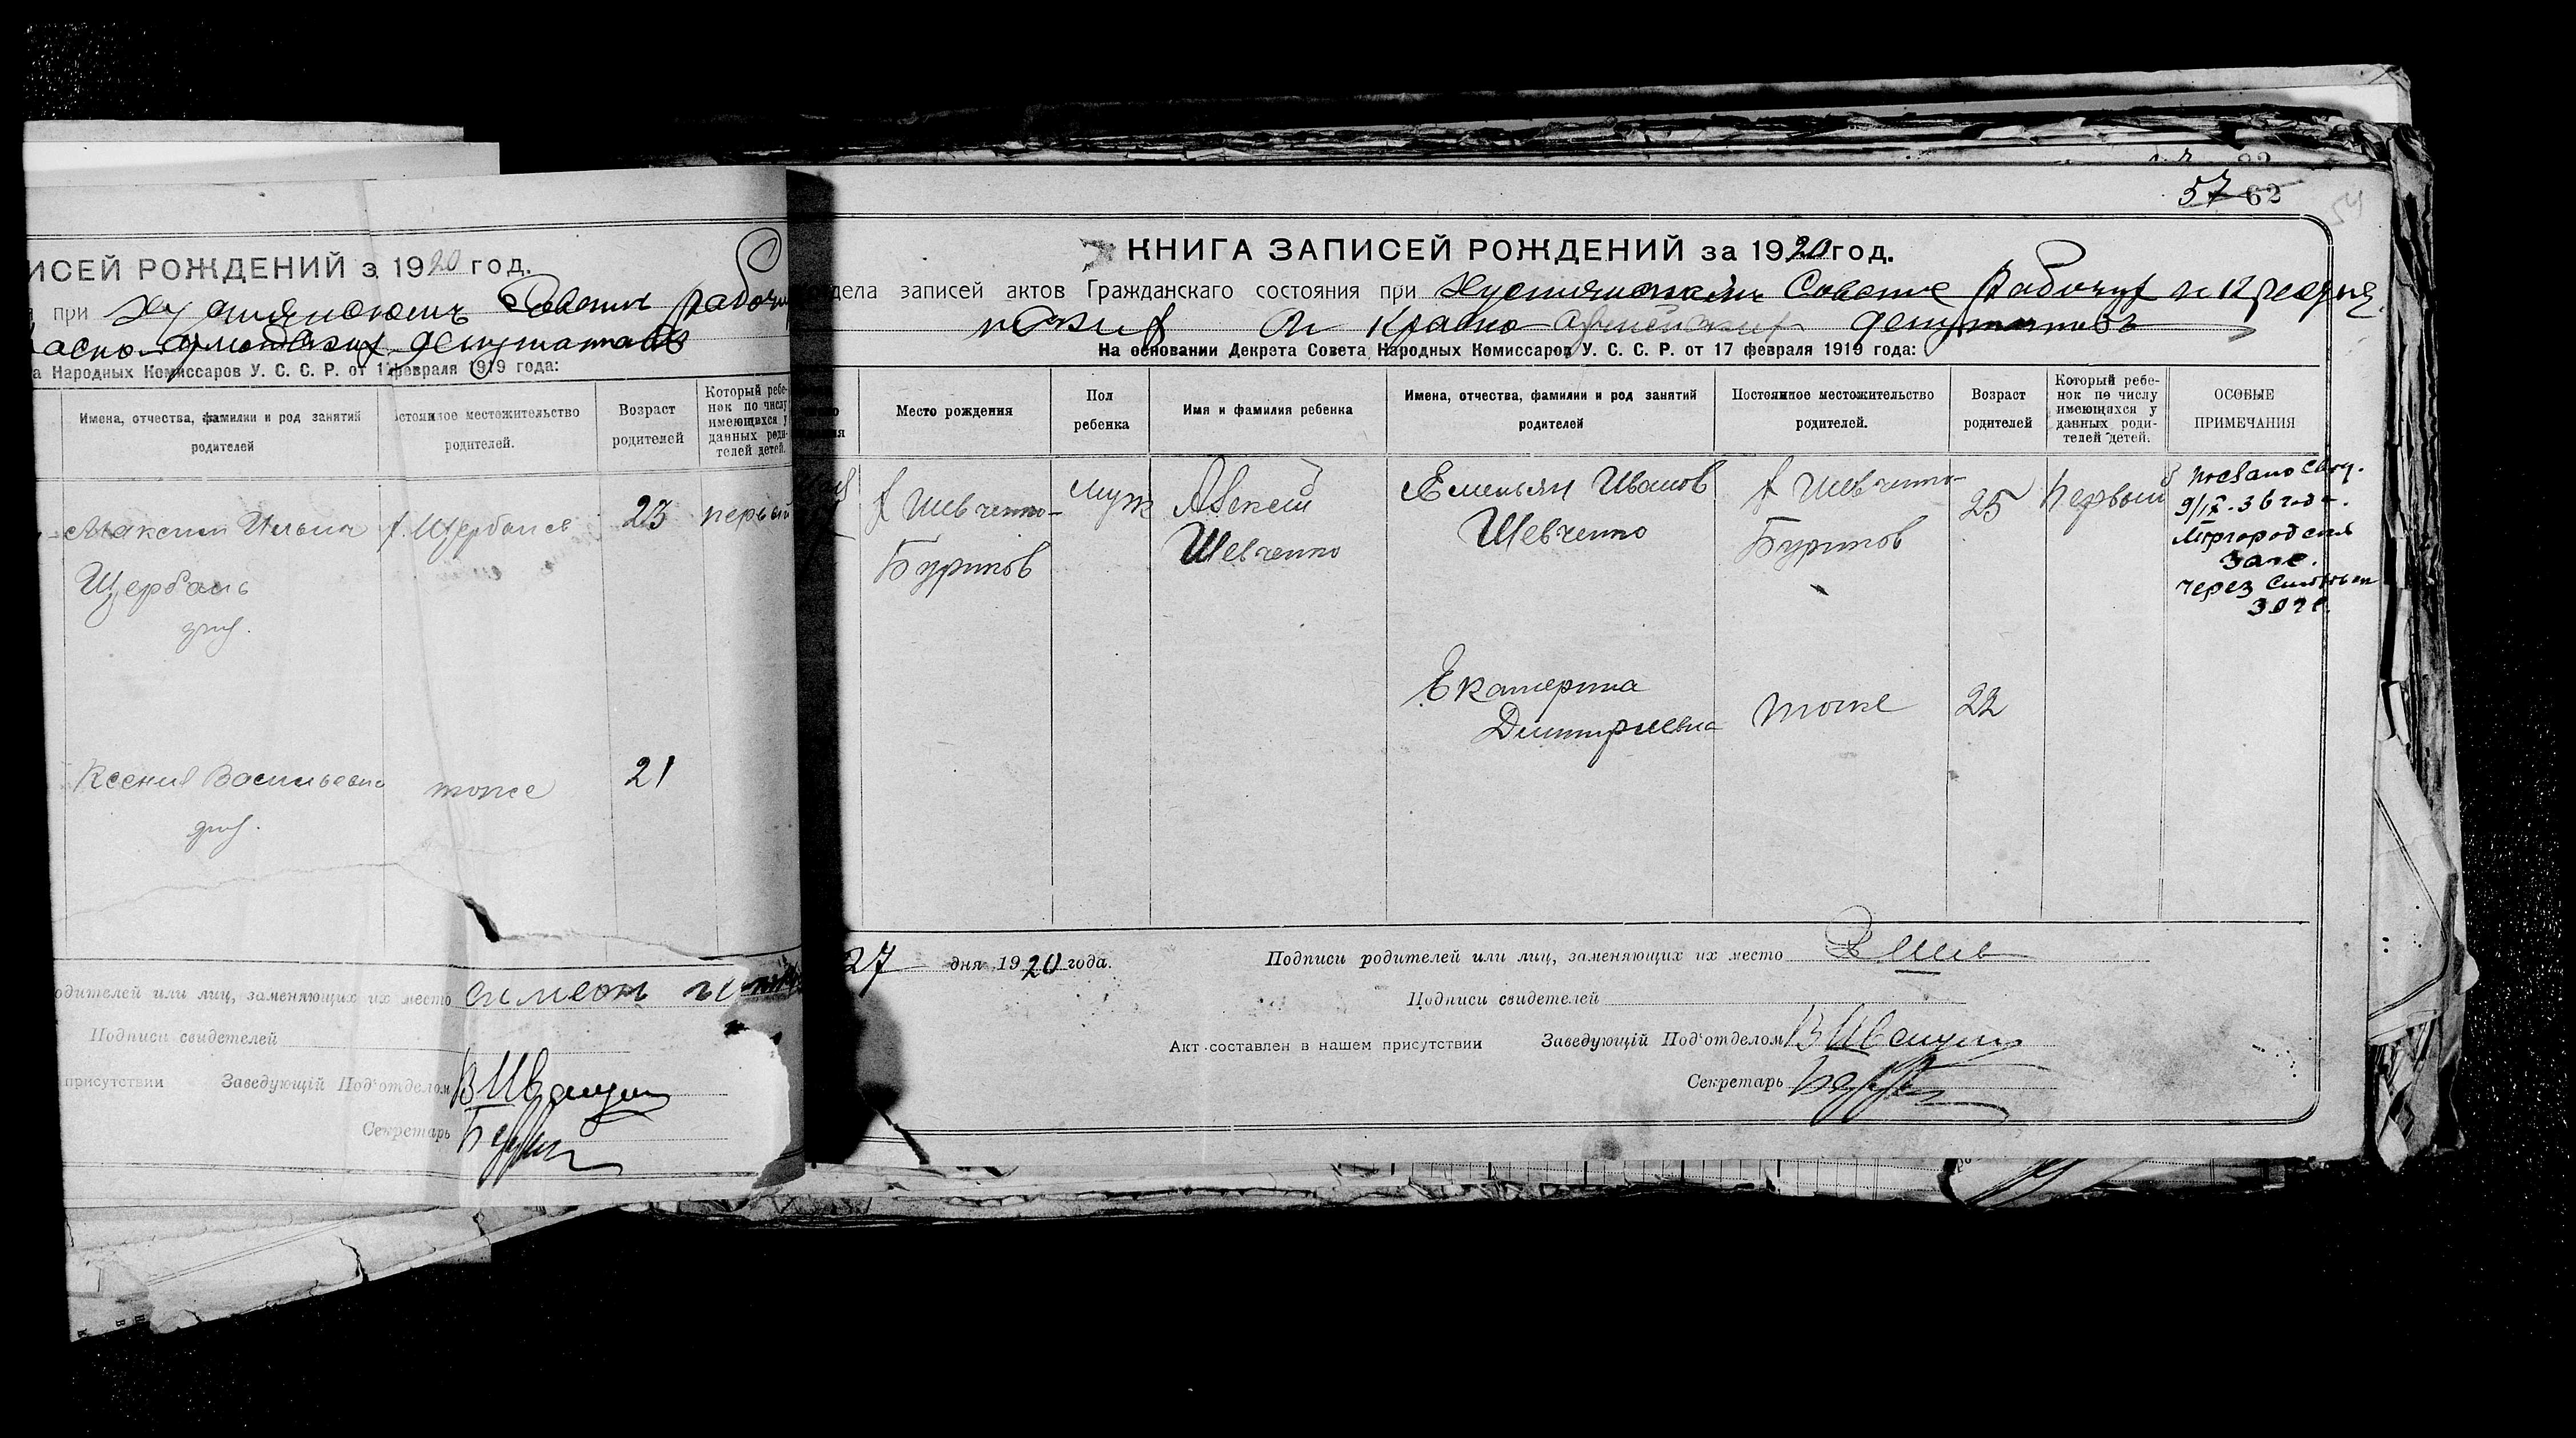 ИСЕЙ РОЖДЕНИЙ з 1920 год.
при Советы рабочи
асно-армейских депутатовъ
а Народных Комиссаров У. С. С. Р. от 1 февраля 1919 года:
Имена, отчества, фамилии и род занятий родителей
стоянное местожительство родителей.
Возраст родителей
Который ребе-
нок по числу
имеющихся у
данных роди-
телей детей.
Максим Ильин
х. Щербанев
23
первый
Щербань
Ксения Васильевна
тоже
21
одителей или лиц, заменяющих их место симеон
Подписи свидетелей
присутствии Заведующій Под'отделом В Иващук
Секретарь
57 62
54
КНИГА ЗАПИСЕЙ РОЖДЕНИЙ за 1920 год.
дела записей актов Гражданскаго состояния при Совете Рабочих и Крестья
нских и Красно-армейских депутатовъ
На основании Декрэта Совета Народных Комиссаров У. С. С. Р. от 17 февраля 1919 года:
Место рождения
Пол ребенка
Имя и фамилия ребенка
Имена, отчества, фамилии и род занятий родителей
Постоянное местожительство родителей.
Возраст родителей
Который ребе-
нок по числу
имеющихся у
данных роди-
телей детей.
ОСОБЫЕ ПРИМЕЧАНИЯ
х Шевченко-
Буриков
Муж
Алексей
Шевченко
Емельян Иванов
Шевченко
х Шевченко-
Буриков
25
Первый
9/IX-36 года.
Миргородския
Загс.
через
загс.
Екатерина
Димитриевна
тоже
22
27 дня 1920 года.
Подписи родителей или лиц, заменяющих их место Е Шев
Подписи свидетелей
Акт составлен в нашем присутствии Заведующій Под'отделом В Иващук
Секретарь